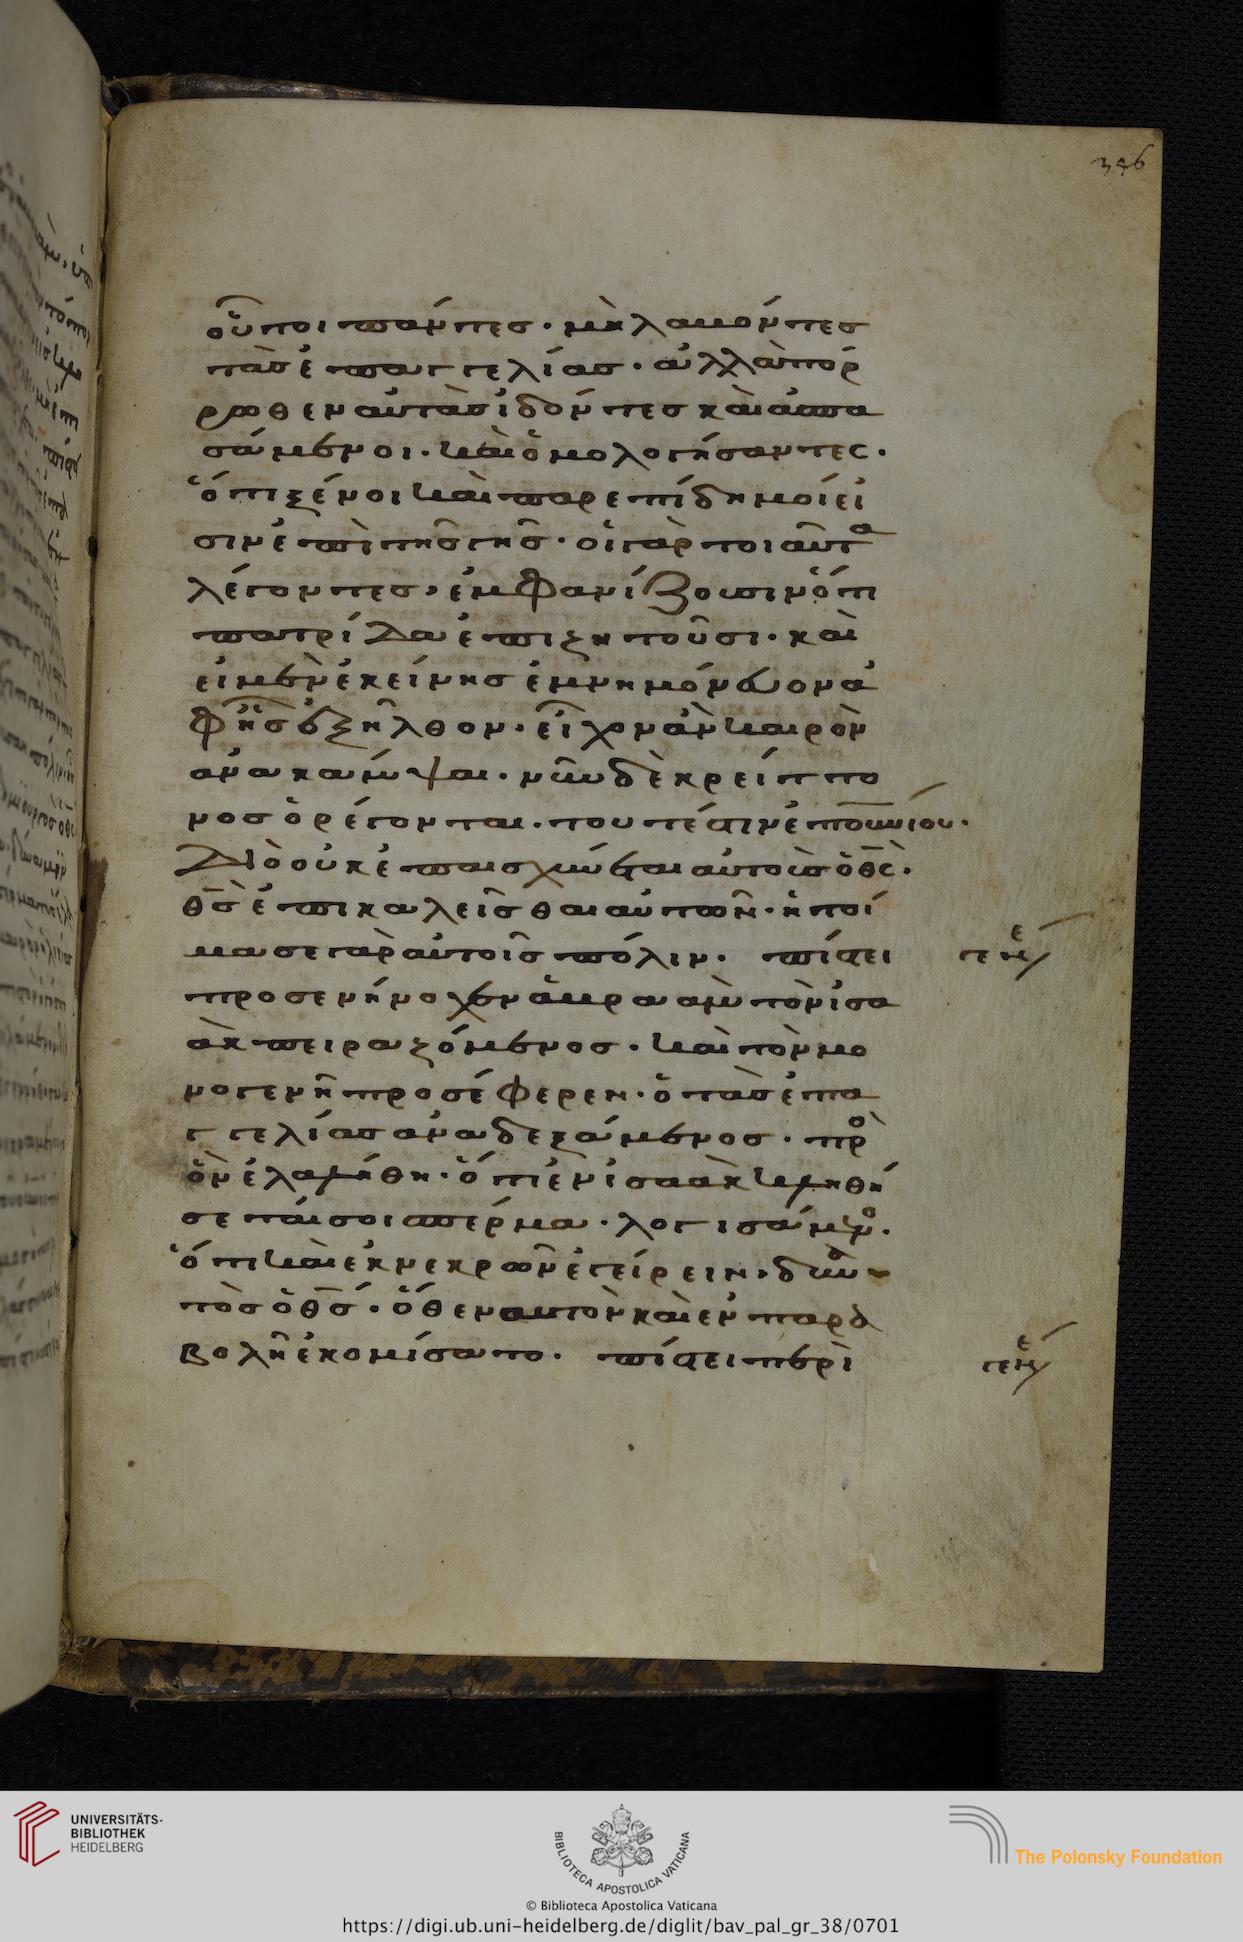 346
οὗτοι πάντες· μὴ λαβόντες
τὰς ἐπαγγελίας· ἀλλὰ πόρ
ρωθεν αὐτὰς ἰδόντες καὶ ἀσπα
σάμενοι· καὶ ὁμολογήσαντες·
ὅτι ξένοι καὶ παρεπίδημοί εἰ
σιν ἐπὶ τῆς γῆς· οἱ γὰρ τοιαῦτα
λέγοντες, ἐμφανίζουσιν ὅτι
πατρίδα ἐπιζητοῦσι· καὶ
εἰ μὲν ἐκείνης ἐμνημόνευον ἀ
φ' ἧς ἐξῆλθον· εἶχον ἂν καιρὸν
ἀνακάμψαι· νῦν δὲ κρείττο
νος ὀρέγονται· τουτέστιν ἐπουνίου·
Διὸ οὐκ ἐπαισχύνεται αὐτοὺς ὁ θς·
θς ἐπικαλεῖσθαι αὐτῶν· ἡτοί
μασε γὰρ αὐτοῖς πόλιν· πίστει
προσενήνοχεν ἁβραὰμ τὸν ἰσα
ὰκ πειραζόμενος· καὶ τὸν μο
νογενῆ προσέφερεν· ὁ τὰς ἐπα
γγελίας ἀναδεξάμενος· πρὸ
ὃν ἐλαλήθη· ὅτι ἐν ἰσαὰκ κληθή
σεταί σοι σπέρμα· λογισάμνο·
ὅτι καὶ ἐκ νεκρῶν ἐγείρειν· δυνα
τὸς ὁ θς· ὅθεν αὐτὸν καὶ ἐν παρα
βολῇ ἐκομίσατο· πίστει περὶ
UNIVERSITÄTS-
BIBLIOTHEK
HEIDELBERG
BIBLIOTECA APOSTOLICA VATICANA
The Polonsky Foundation
© Biblioteca Apostolica Vaticana
https://digi.ub.uni-heidelberg.de/diglit/bav_pal_gr_38/0701